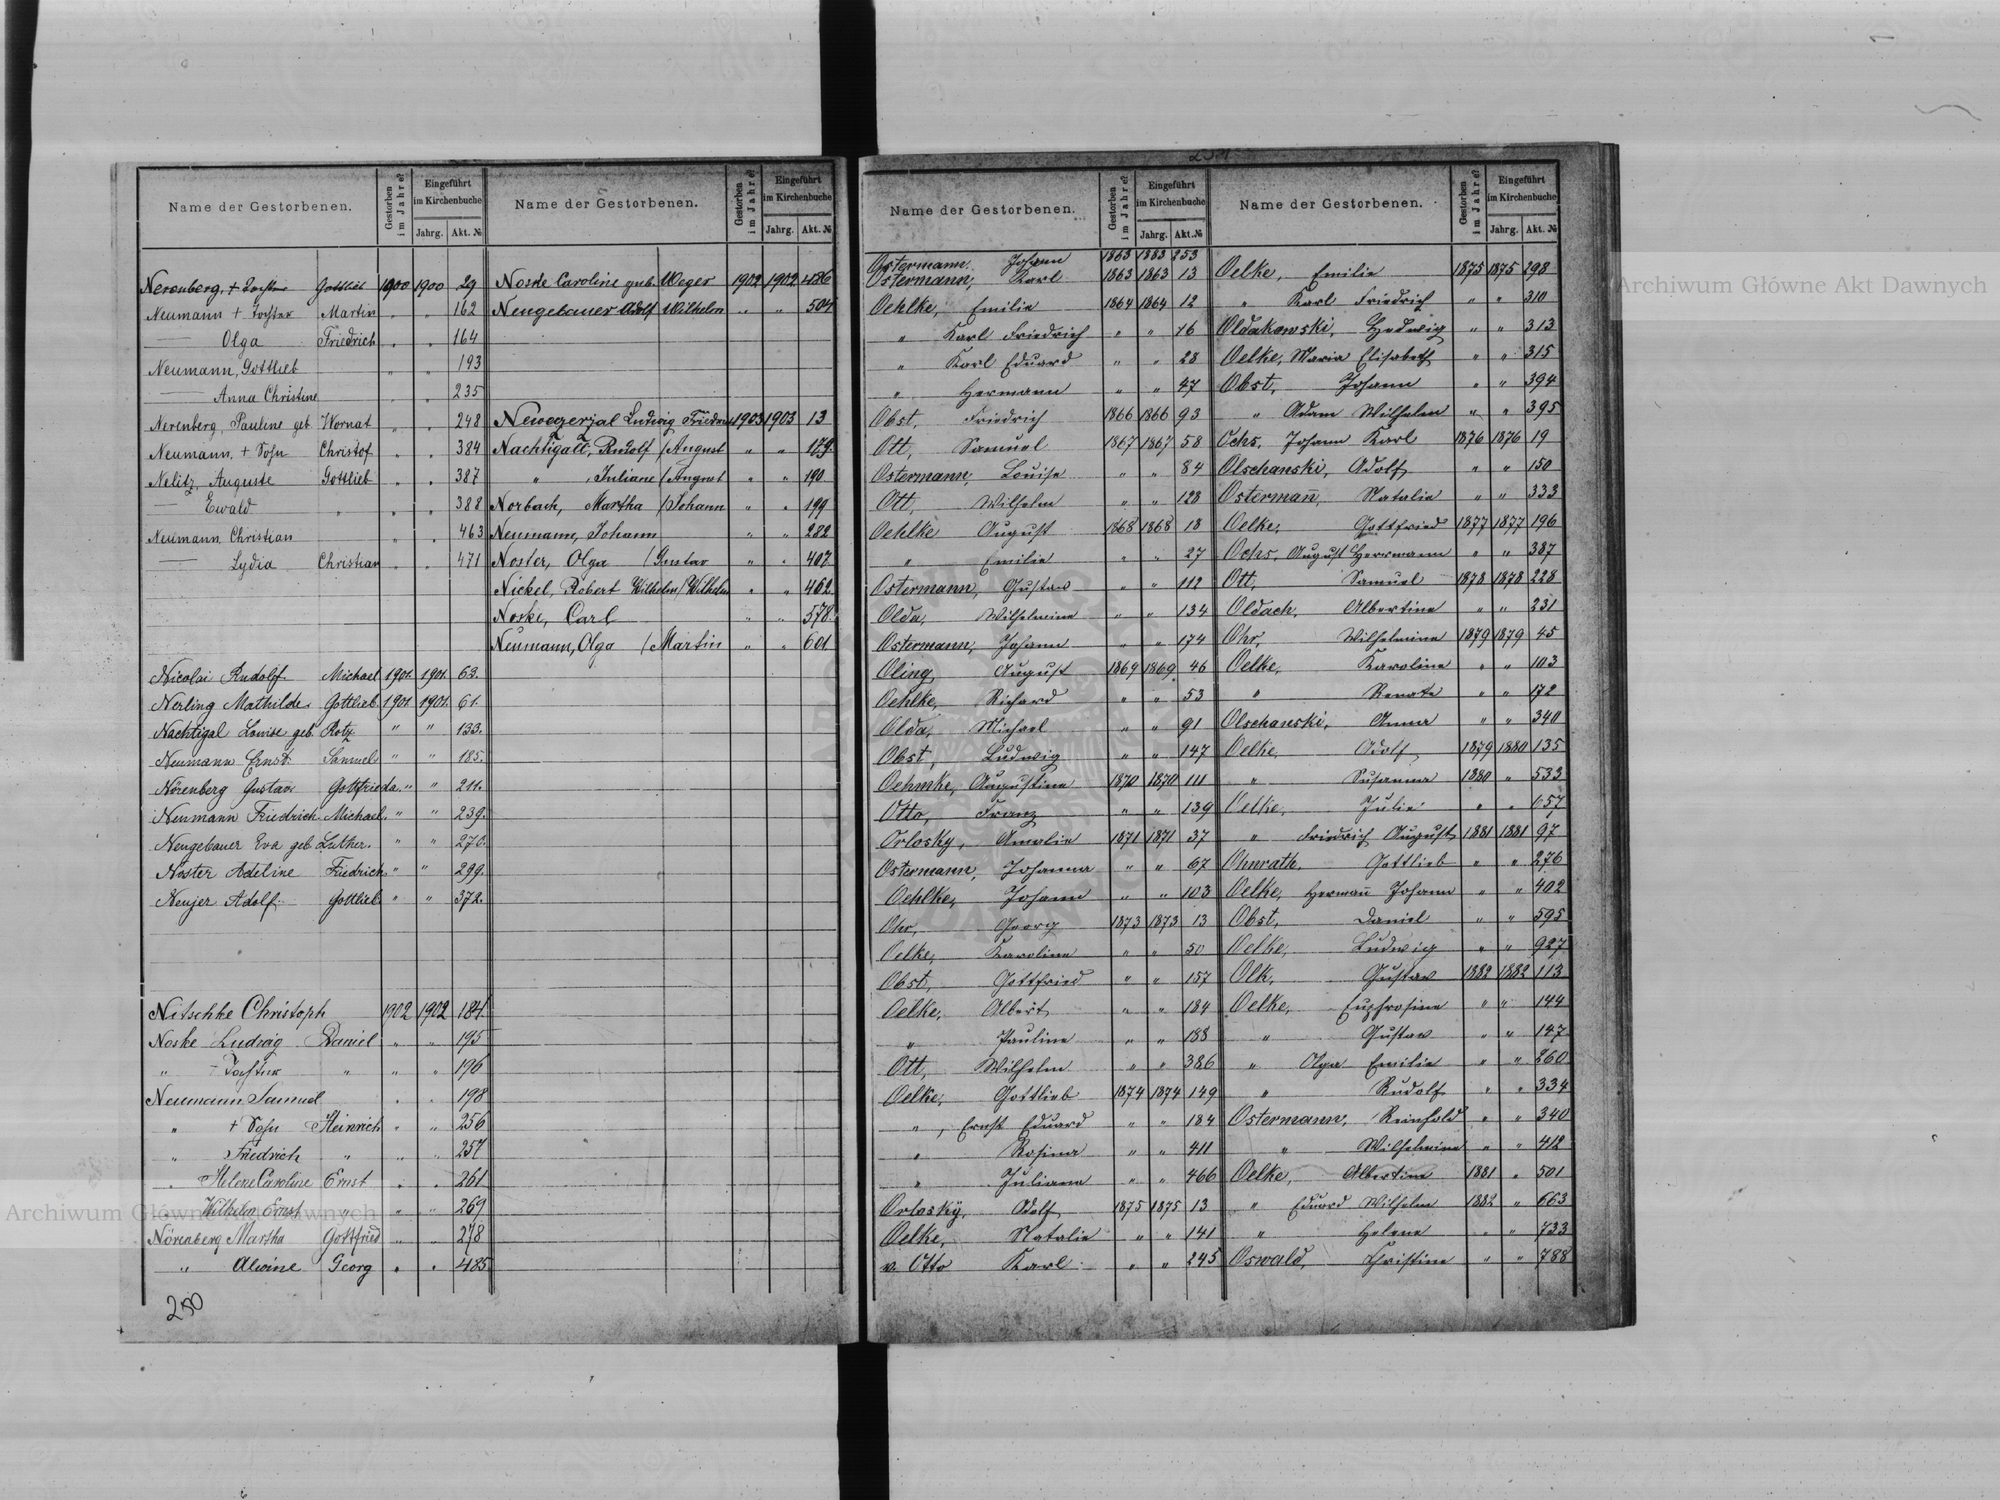 Name der Gestorbenen. Gestorben im Jahre? Eingeführt im Kirchenbuche Jahrg. Akt. №
Nerenberg, + Tochter Gottlieb 1900 1900 29
Neumann + Tochter Martin " " 162
— Olga Friedrich " " 164
Neumann, Gottlieb " " 193
— Anna Christine " " 235
Nerenberg, Pauline geb. Wornat " " 248
Neumann, + Sohn Christof " " 384
Nelitz, Auguste Gottlieb " " 387
— Ewald " " " 388
Neumann Christian " " 463
— Lydia Christian " " 471
Nicolai Rudolf Michael 1901. 1901. 63.
Nerling Mathilde Gottlieb 1901. 1901. 61.
Nachtigal Louise geb. Rotz " " 133.
Neumann Ernst Samuel " " 185.
Nörenberg Gustav Gottfrieda " " 211.
Neumann Friedrich Michael. " " 239.
Neugebauer Eva geb. Luther. " " 270.
Noster Adeline Friedrich " " 299.
Neujer Adolf Gottlieb " " 372.
Nitschke Christoph 1902 1902 184
Noske Ludwig Daniel " " 195
" + Tochter " " " 196
Neumann Samuel " " 198
" + Sohn Heinrich " " 256
" Friedrich " " " 257
" Helene Caroline Ernst " " 261
— Wilhelm Ernst " " " 269
Nörenberg Martha Gottfried " " 278
" Alwine Georg " " 485
250
Name der Gestorbenen. Gestorben im Jahre? Eingeführt im Kirchenbuche Jahrg. Akt. №
Noske Caroline geb. Weger 1902 1902 486
Neugebauer Adolf Wilhelm " " 504
Ludwig 1903 1903 13
Nachtigall, Rudolf /August " " 179.
" , Juliane /August " " 190.
Norbach, Martha /Johann " " 199
Neumann, Johann " " 282
Noster, Olga /Gustav " " 407.
Nickel, Robert Wilhelm /Wilhelm " " 462
Noske, Carl " " 578.
Neumann, Olga /Martin " " 601
Name der Gestorbenen. Gestorben im Jahre? Eingeführt im Kirchenbuche Jahrg. Akt. №
Ostermann Johann 1863 1883 253
Ostermann, Karl 1863 1863 13
Oehlke, Emilie 1864 1864 12
" Karl Friedrich " " 16
" Karl Eduard " " 28
" Hermann " " 47
Obst, Friedrich 1866 1866 93
Ott, Samuel 1867 1867 58
Ostermann, Louise " " 84
Ott, Wilhelm " " 128
Oehlke August 1868 1868 18
" Emilie " " 27
Ostermann, Gustav " " 112
Olda, Wilhelmine " " 134
Ostermann, Johann " " 174
Oling, August 1869 1869 46
Oehlke, Richard " " 53
Olda, Michael " " 91
Obst, Ludwig " " 147
Oehmke, Augustine 1870 1870 111
Otto, Franz " " 139
Orlosky, Amalie 1871 1871 37
Ostermann, Johanna " " 67
Oehlke, Johann " " 103
Ohr, Georg 1873 1873 13
Oelke, Karoline " " 50
Obst, Gottfried " " 157
Oelke, Albert " " 184
" Pauline " " 188
Ott, Wilhelm " " 386
Oelke, Gottlieb 1874 1874 149
" , Ernst Eduard " " 184
" Rosina " " 411
" Juliana " " 466
Orlosky, Adolf 1875 1875 13
Oelke, Natalie " " 141
v. Otto Karl " " 245
Name der Gestorbenen. Gestorben im Jahre? Eingeführt im Kirchenbuche Jahrg. Akt. №
Oelke, Emilie 1875 1875 298
" Karl Friedrich " " 310
Oldakowski, Hedwig " " 313
Oelke, Maria Elisabeth " " 315
Obst, Johann " " 394
" Adam Wilhelm " " 395
Ochs, Johann Karl 1876 1876 19
Olschanski, Adolf " " 150
Osterman̄, Natalie " " 333
Oelke, Gottfried 1877 1877 196
Ochs, August Herrmann " " 387
Ott, Samuel 1878 1878 228
Oldach, Albertine " " 231
Ohr, Wilhelmine 1879 1879 45
Oelke, Karoline " " 103
" Renate " " 172
Olschanski, Anna " " 340
Oelke, Adolf 1879 1880 135
" Susanna 1880 " 533
Oelke, Julie " " 657
" Friedrich August 1881 1881 97
Ohnrath, Gottlieb " " 276
Oelke, Herman̄ Johann " " 402
Obst, Daniel " " 595
Oelke, Ludwig " " 927
Olk, Gustav 1882 1882 113
Oelke, Euphrosine " " 144
" Gustav " " 147
" Olga Emilie " " 260
" Rudolf " " 334
Ostermann, Reinhold " " 340
" Wilhelmine " " 412
Oelke, Albertine 1881 " 501
" Eduard Wilhelm 1882 " 663
" Helene " " 733
Oswald, Christine " " 788
Archiwum Główne Akt Dawnych
Archiwum Główne Akt Dawnych